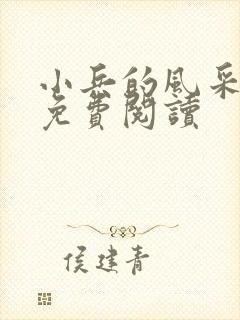 小岳的風采
免費閱讀
侯建青